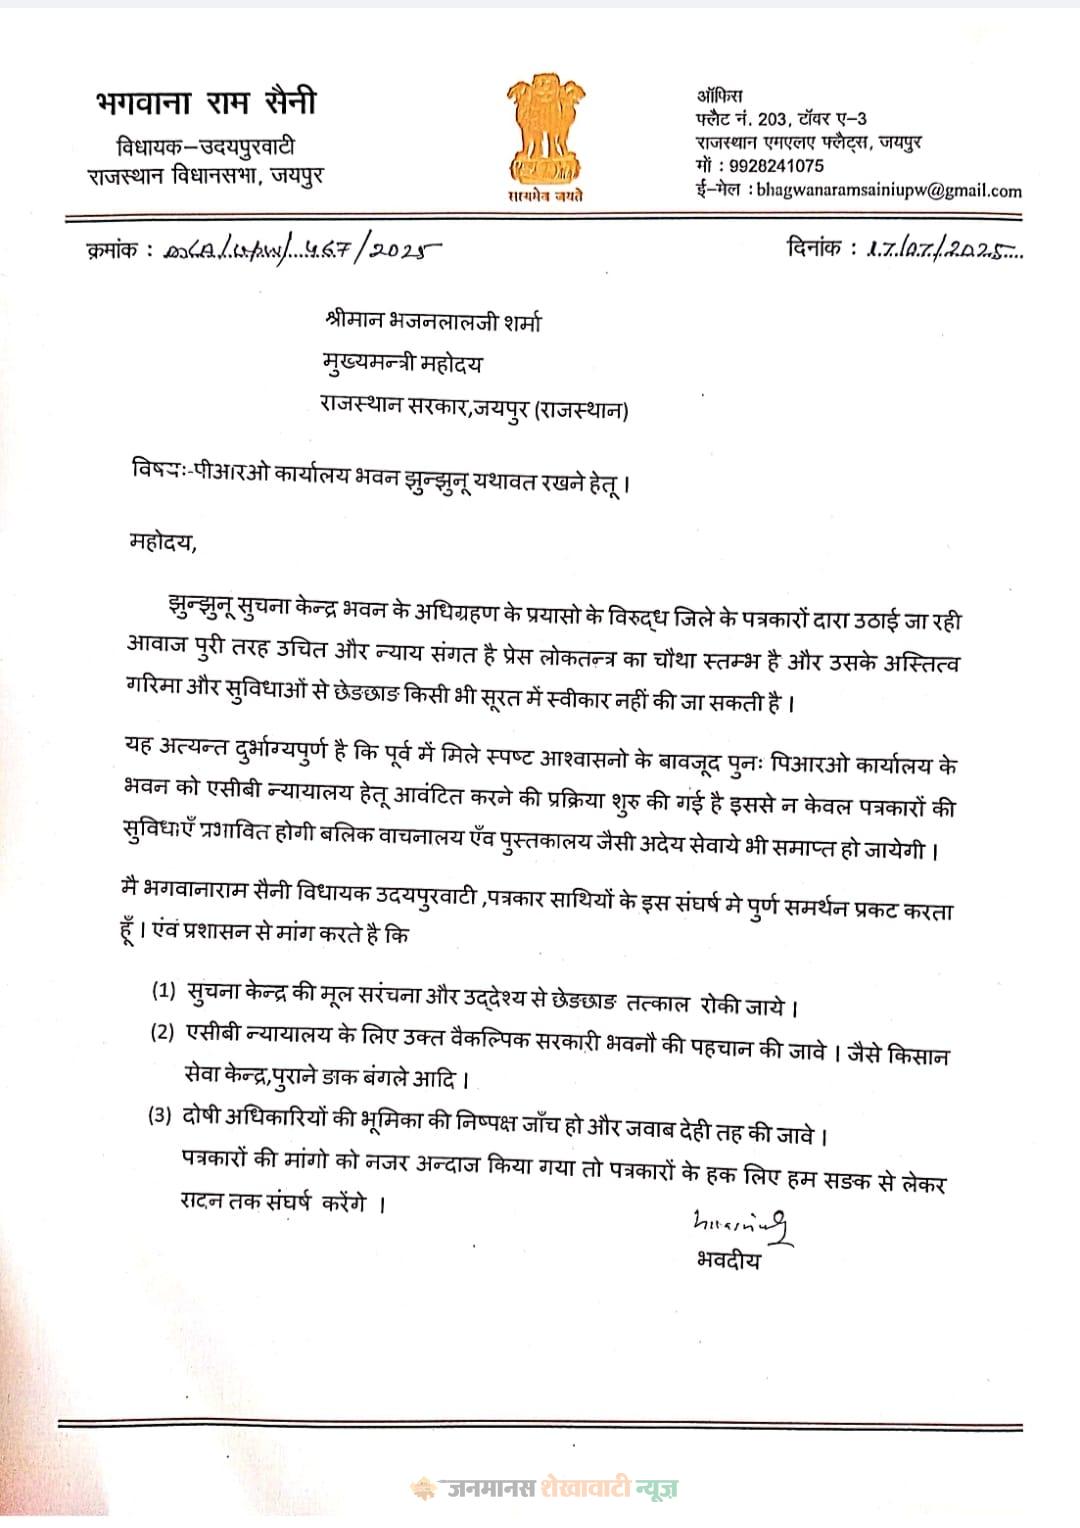 भगवाना राम सैनी
विधायक–उदयपुरवाटी
राजस्थान विधानसभा, जयपुर
सत्यमेव जयते
ऑफिस
फ्लैट नं. 203, टॉवर ए–3
राजस्थान एमएलए फ्लैट्स, जयपुर
मों : 9928241075
ई–मेल : bhagwanaramsainiupw@gmail.com
क्रमांक : /2025
दिनांक : 17/07/2025
श्रीमान भजनलालजी शर्मा
मुख्यमन्त्री महोदय
राजस्थान सरकार,जयपुर (राजस्थान)
विषयः-पीआरओ कार्यालय भवन झुन्झुनू यथावत रखने हेतू ।
महोदय,
झुन्झुनू सुचना केन्द्र भवन के अधिग्रहण के प्रयासो के विरुद्ध जिले के पत्रकारों दारा उठाई जा रही
आवाज पुरी तरह उचित और न्याय संगत है प्रेस लोकतन्त्र का चौथा स्तम्भ है और उसके अस्तित्व
गरिमा और सुविधाओं से छेङछाङ किसी भी सूरत में स्वीकार नहीं की जा सकती है ।
यह अत्यन्त दुर्भाग्यपुर्ण है कि पूर्व में मिले स्पष्ट आश्वासनो के बावजूद पुनः पिआरओ कार्यालय के
भवन को एसीबी न्यायालय हेतू आवंटित करने की प्रक्रिया शुरु की गई है इससे न केवल पत्रकारों की
सुविधाएँ प्रभावित होगी बलिक वाचनालय एँव पुस्तकालय जैसी अदेय सेवाये भी समाप्त हो जायेगी ।
मै भगवानाराम सैनी विधायक उदयपुरवाटी ,पत्रकार साथियों के इस संघर्ष मे पुर्ण समर्थन प्रकट करता
हूँ । एंवं प्रशासन से मांग करते है कि
(1) सुचना केन्द्र की मूल सरंचना और उद्देश्य से छेङछाङ तत्काल रोकी जाये ।
(2) एसीबी न्यायालय के लिए उक्त वैकल्पिक सरकारी भवनौ की पहचान की जावे । जैसे किसान
सेवा केन्द्र,पुराने ङाक बंगले आदि ।
(3) दोषी अधिकारियों की भूमिका की निष्पक्ष जाँच हो और जवाब देही तह की जावे ।
पत्रकारों की मांगो को नजर अन्दाज किया गया तो पत्रकारों के हक लिए हम सङक से लेकर
सदन तक संघर्ष करेंगे ।
भवदीय
जनमानस शेखावाटी न्यूज़